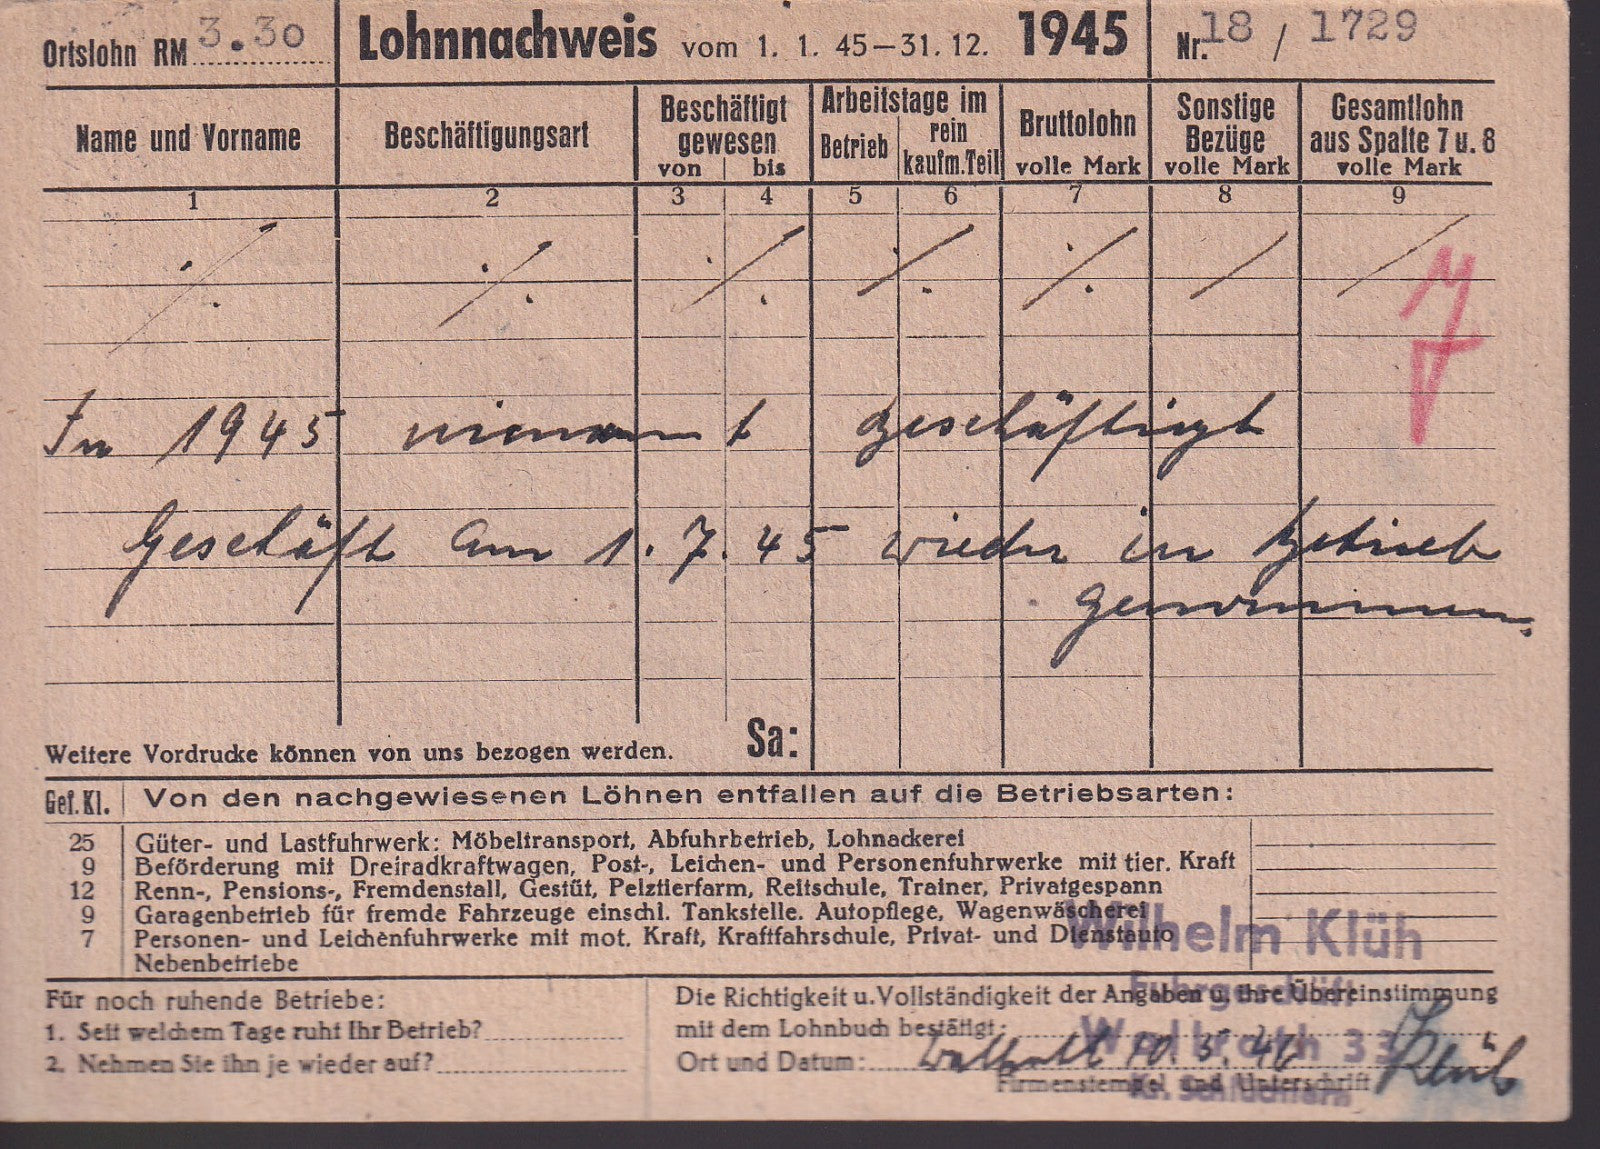 Ortslohn RM 3.30
Lohnnachweis vom 1. 1. 45–31. 12. 1945
Nr. 18 / 1729
Name und Vorname
Beschäftigungsart
Beschäftigt gewesen
von bis
Arbeitstage im
Betrieb
rein kaufm. Teil
Bruttolohn
volle Mark
Sonstige Bezüge
volle Mark
Gesamtlohn aus Spalte 7 u. 8
volle Mark
1 2 3 4 5 6 7 8 9
In 1945 niemamt geschäftigt
Geschäft am 1. 7. 45 wieder in betrieb
genommen.
Weitere Vordrucke können von uns bezogen werden.
Sa:
Gef. Kl. Von den nachgewiesenen Löhnen entfallen auf die Betriebsarten:
25 Güter- und Lastfuhrwerk: Möbeltransport, Abfuhrbetrieb, Lohnackerei
9 Beförderung mit Dreiradkraftwagen, Post-, Leichen- und Personenfuhrwerke mit tier. Kraft
12 Renn-, Pensions-, Fremdenstall, Gestüt, Pelztierfarm, Reitschule, Trainer, Privatgespann
9 Garagenbetrieb für fremde Fahrzeuge einschl. Tankstelle. Autopflege, Wagenwäscherei
7 Personen- und Leichenfuhrwerke mit mot. Kraft, Kraftfahrschule, Privat- und Dienstauto
Nebenbetriebe
Wilhelm Klüh
Fuhrgeschäft
Wallroth 33
Kr. Schlüchtern
Für noch ruhende Betriebe:
1. Seit welchem Tage ruht Ihr Betrieb?
2. Nehmen Sie ihn je wieder auf?
Die Richtigkeit u. Vollständigkeit der Angaben u. ihre Übereinstimmung
mit dem Lohnbuch bestätigt:
Ort und Datum: Wallroth 10. 5. 46 Klüh
Firmenstempel und Unterschrift